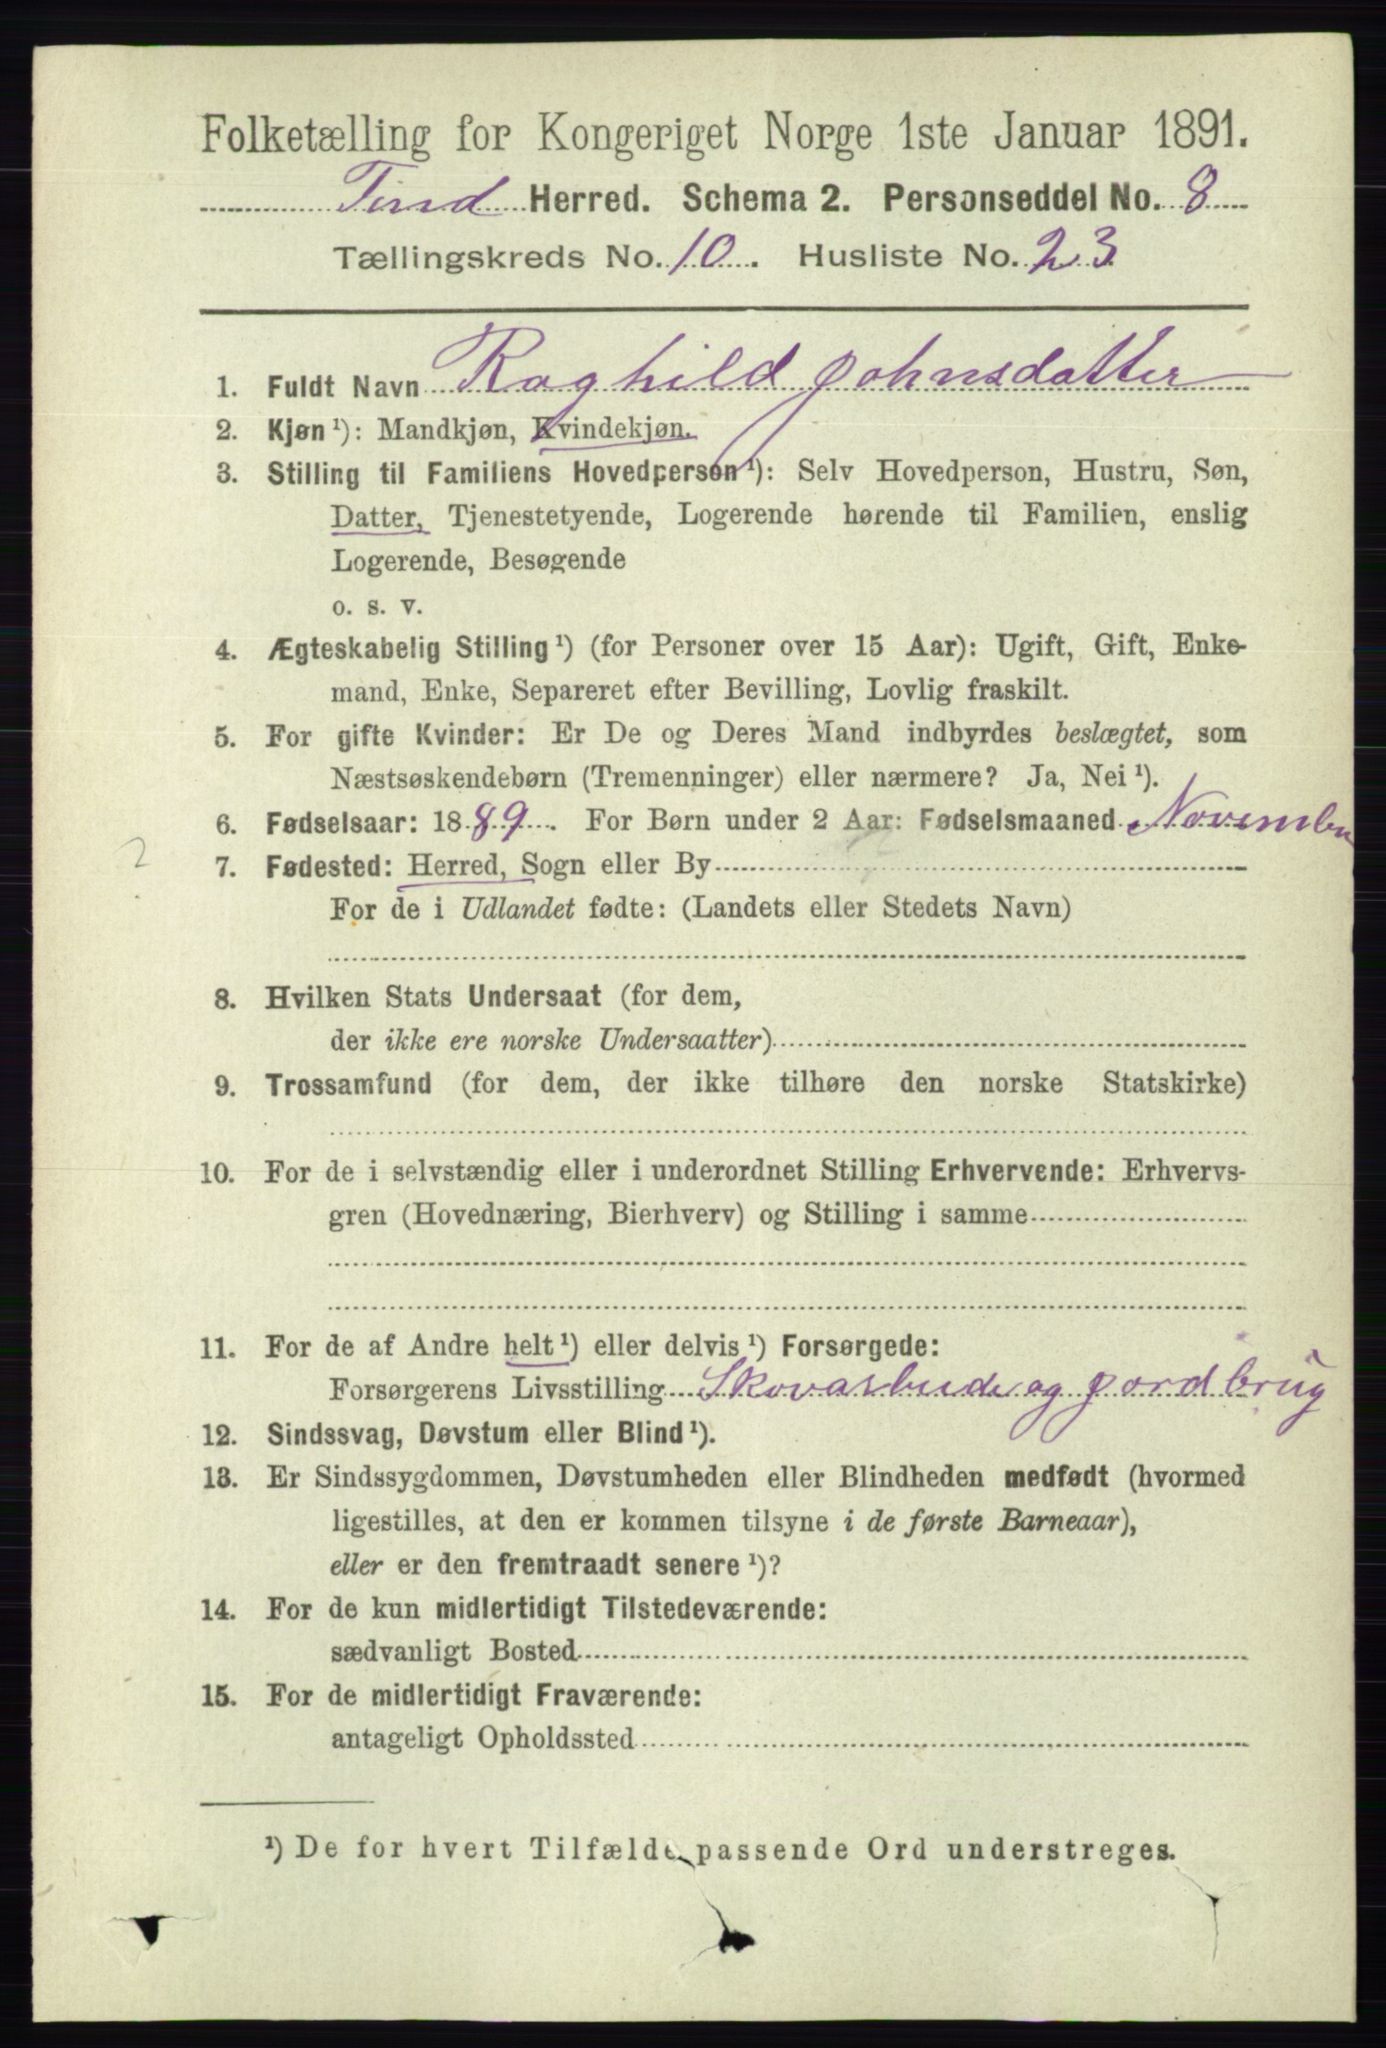 Folketælling for Kongeriget Norge 1ste Januar 1891.
Tind Herred. Schema 2. Personseddel No. 8
Tællingskreds No. 10. Husliste No. 23
1. Fuldt Navn Raghild Johnsdatter
2. Kjøn ¹): Mandkjøn, Kvindekjøn.
3. Stilling til Familiens Hovedperson ¹): Selv Hovedperson, Hustru, Søn,
Datter, Tjenestetyende, Logerende hørende til Familien, enslig
Logerende, Besøgende
o. s. v.
4. Ægteskabelig Stilling ¹) (for Personer over 15 Aar): Ugift, Gift, Enke-
mand, Enke, Separeret efter Bevilling, Lovlig fraskilt.
5. For gifte Kvinder: Er De og Deres Mand indbyrdes beslægtet, som
Næstsøskendebørn (Tremenninger) eller nærmere? Ja, Nei ¹).
6. Fødselsaar: 1889. For Børn under 2 Aar: Fødselsmaaned November
2
7. Fødested: Herred, Sogn eller By
For de i Udlandet fødte: (Landets eller Stedets Navn)
8. Hvilken Stats Undersaat (for dem,
der ikke ere norske Undersaatter)
9. Trossamfund (for dem, der ikke tilhøre den norske Statskirke)
10. For de i selvstændig eller i underordnet Stilling Erhvervende: Erhvervs-
gren (Hovednæring, Bierhverv) og Stilling i samme
11. For de af Andre helt ¹) eller delvis ¹) Forsørgede:
Forsørgerens Livsstilling Skovarbude og Jordbrug
12. Sindssvag, Døvstum eller Blind ¹).
13. Er Sindssygdommen, Døvstumheden eller Blindheden medfødt (hvormed
ligestilles, at den er kommen tilsyne i de første Barneaar),
eller er den fremtraadt senere ¹)?
14. For de kun midlertidigt Tilstedeværende:
sædvanligt Bosted
15. For de midlertidigt Fraværende:
antageligt Opholdssted
¹) De for hvert Tilfælde passende Ord understreges.